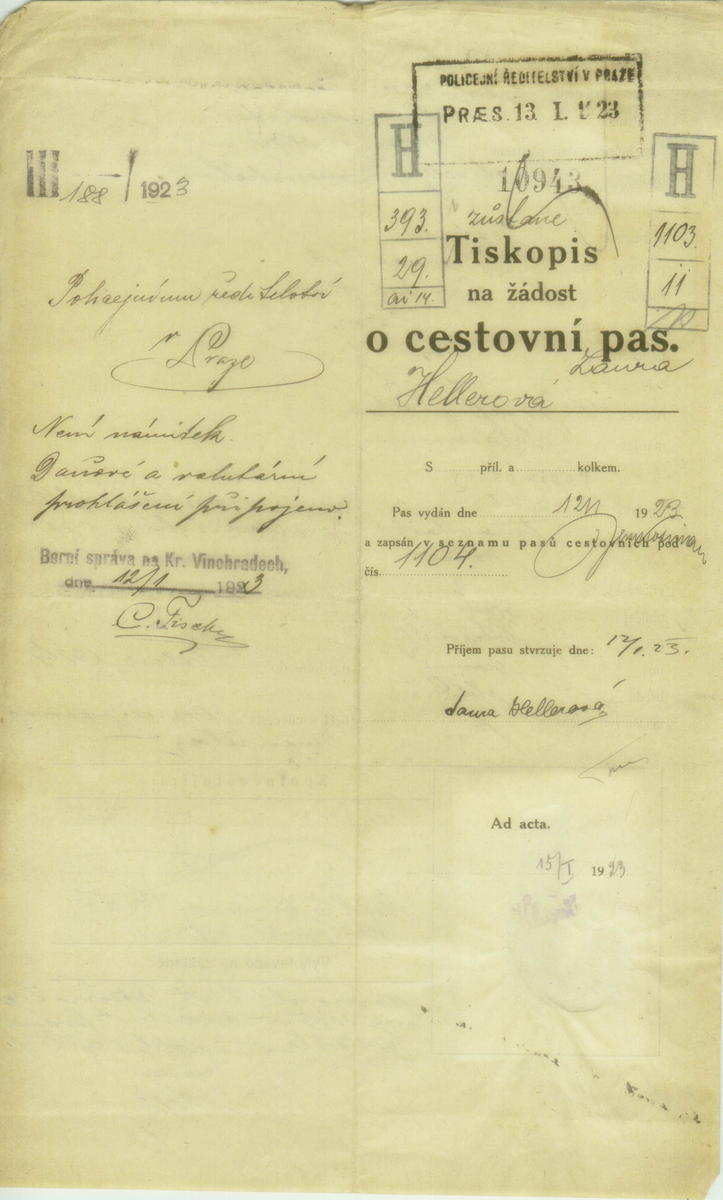 III 188 / 1923
Policejnímu ředitelství
v Praze
Není námitek.
Daňové a valutární
prohlášení připojeno.
Berní správa na Kr. Vinohradech,
dne 12/1 1923
C. Fischer
POLICEJNÍ ŘEDITELSTVÍ V PRAZE
PRÆS. 13. I. 1923
10943
H
393.
29.
H
1103.
11
zůstane
Tiskopis
na žádost
o cestovní pas.
Hellerová Laura
S příl. a kolkem.
Pas vydán dne 12/I 1923
a zapsán v seznamu pasů cestovních pod
čís. 1104.
Příjem pasu stvrzuje dne: 12/I. 23.
Laura Hellerová
Ad acta.
15/I 1923